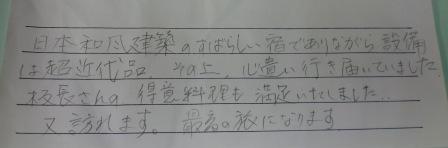 日本和風建築のすばらしい宿でありながら設備
は超近代品、その上、心遣い行き届いていました.
板長さんの 得意料理も 満足いたしました..
又訪れます。 最高の旅になります